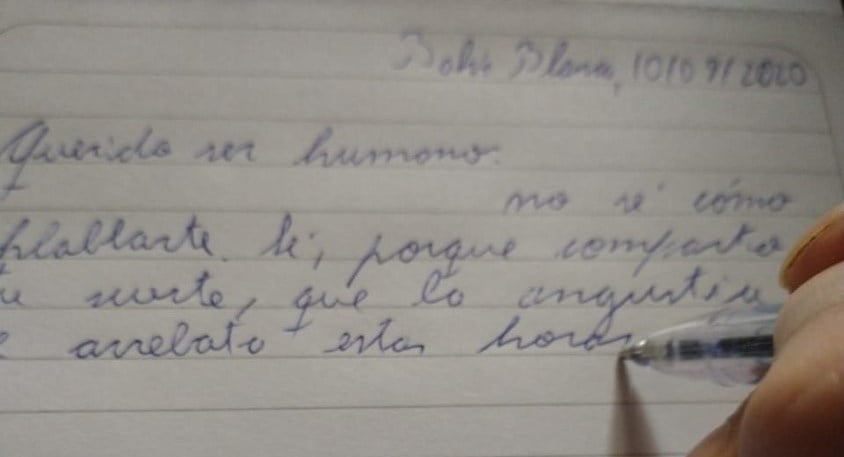 Bahía Blanca, 10/09/2020
Querido ser humano:
no sé cómo
hablarte. Sé, porque comparto
tu suerte, que la angustia
te arrebata estas horas